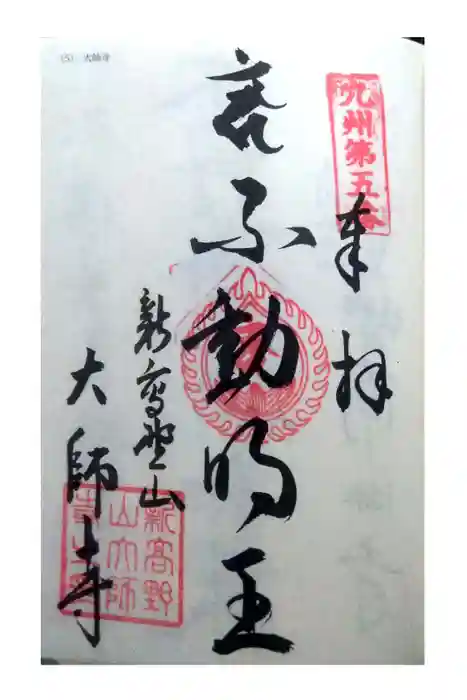 九州第五番
奉拝
不動明王
新高野山
大師寺
新高野
山大師
寺之印
(5) 大師寺